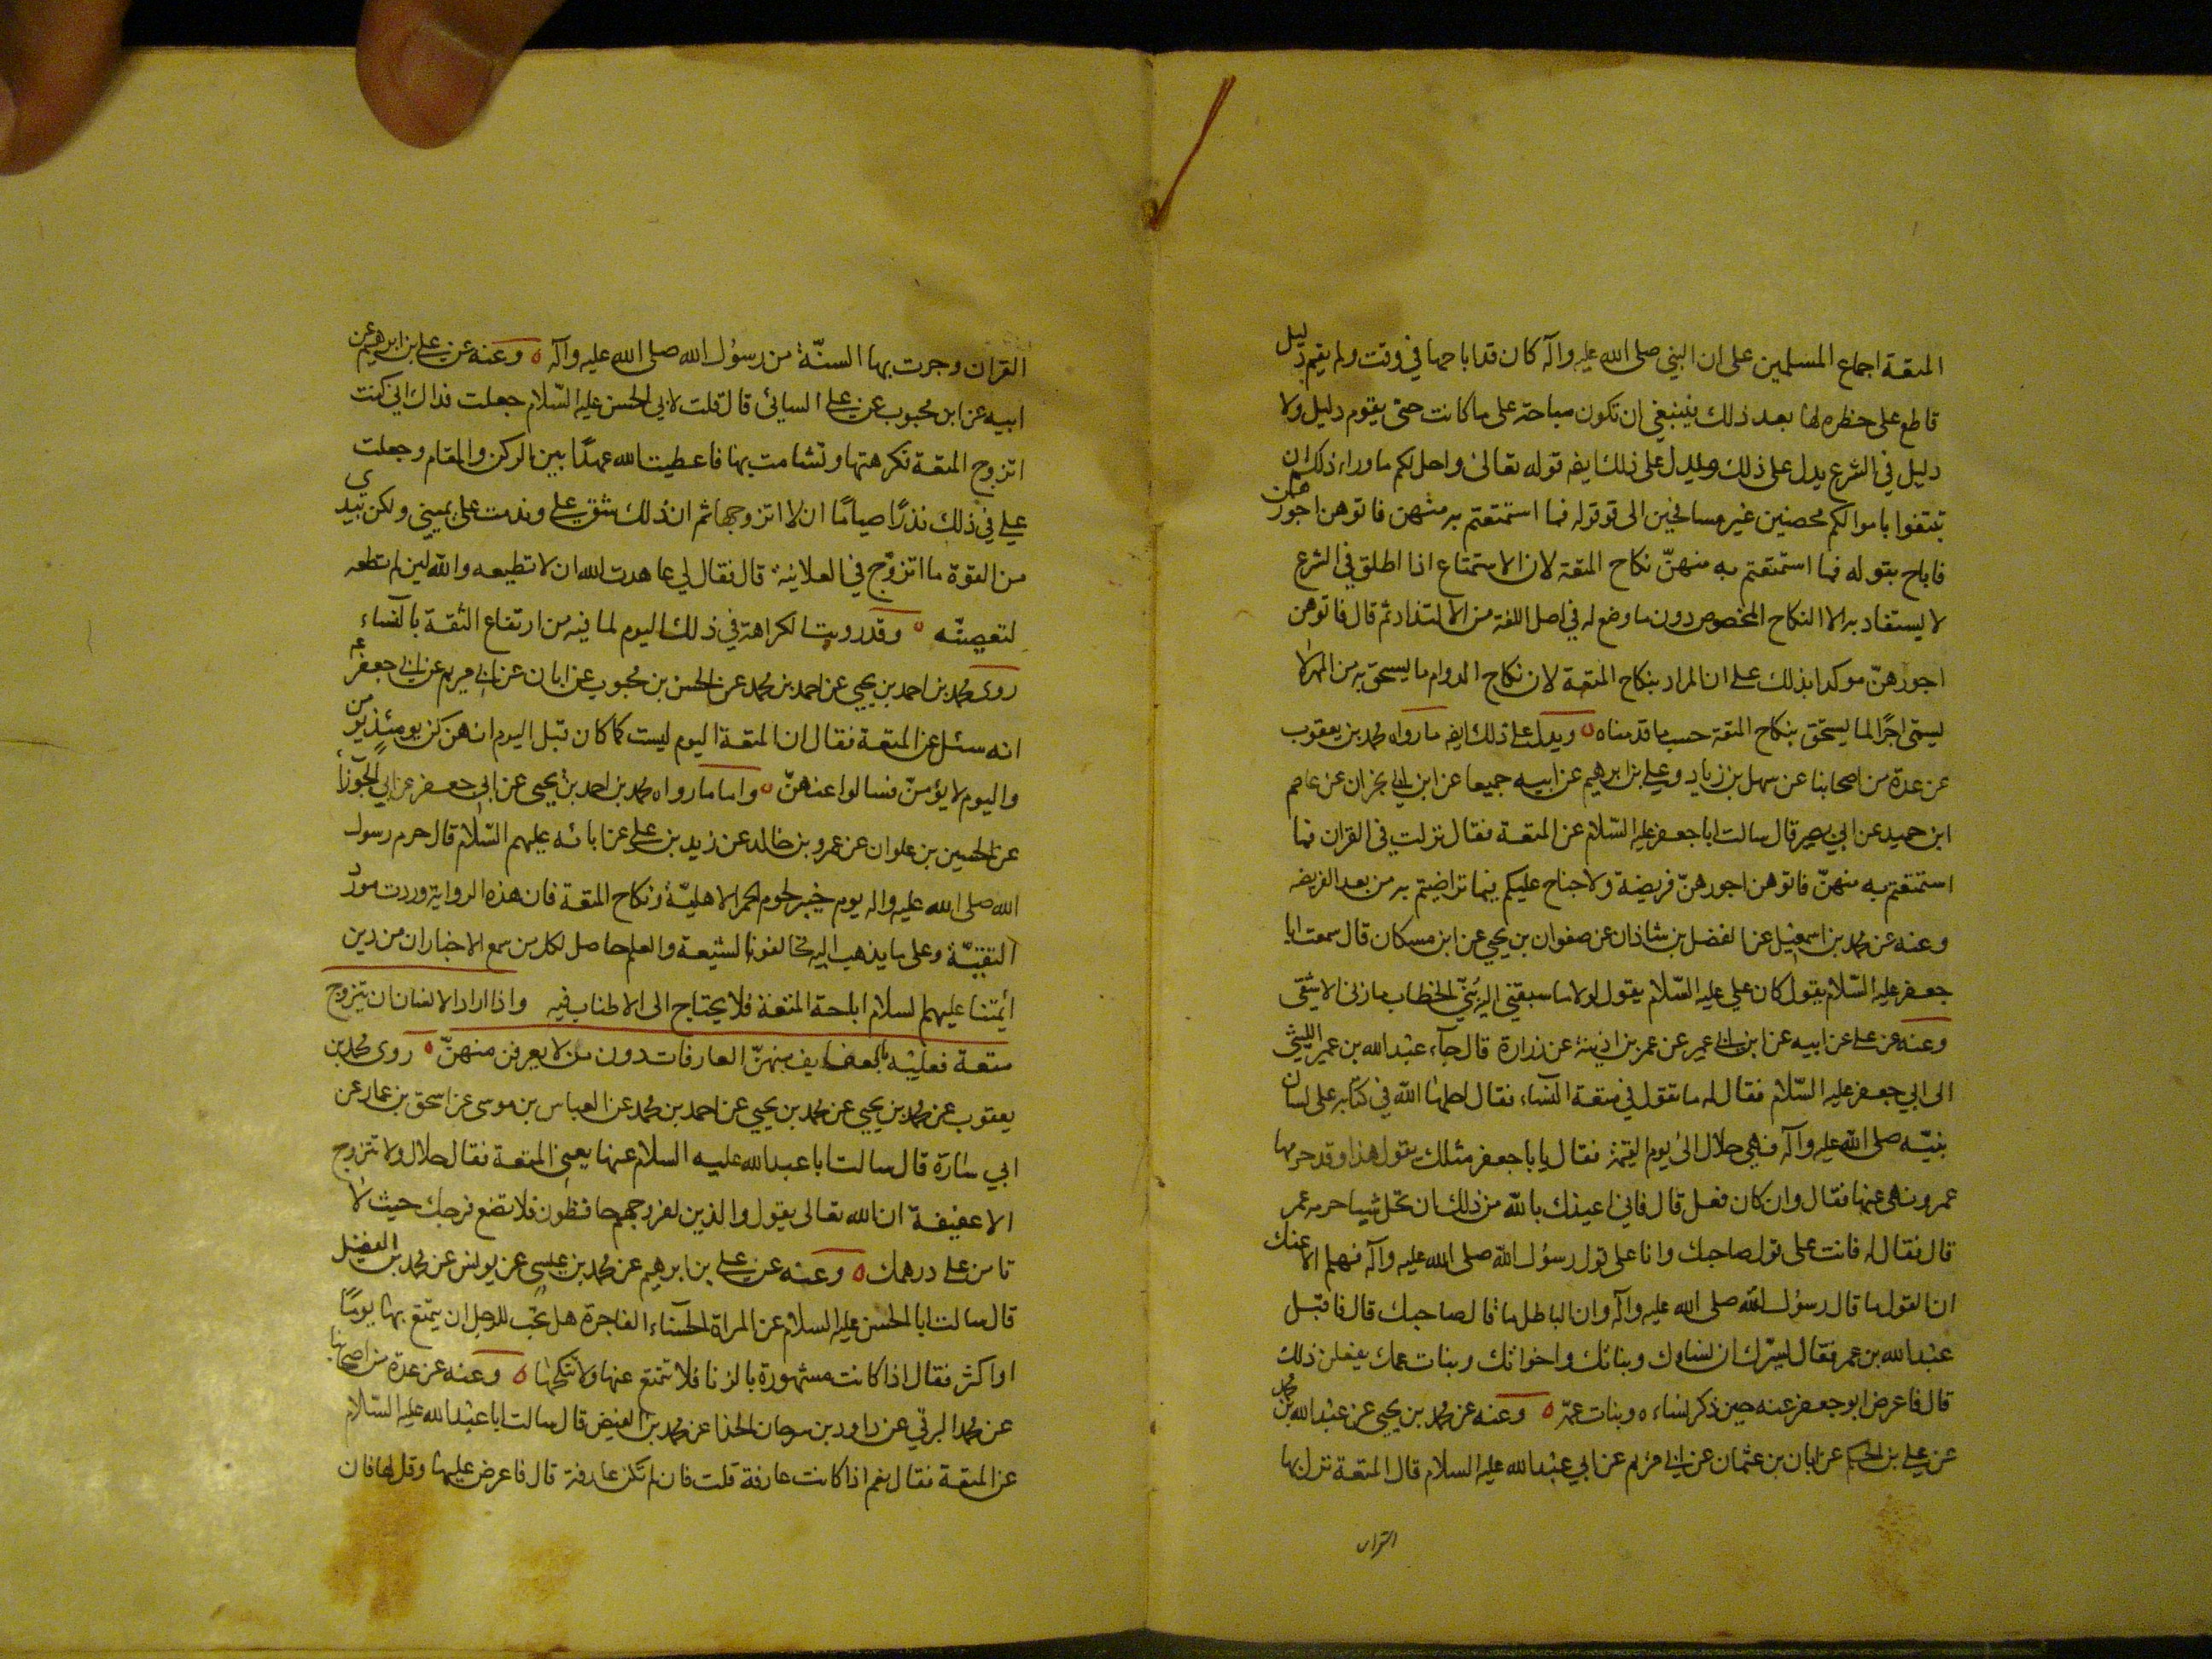 المتعة اجماع المسلمين على ان النبي صلى الله عليه وآله كان قد اباحها في وقت ولم يقم دليل
قاطع على حظره لها بعد ذلك فينبغي ان تكون مباحة على ما كانت حتى يقوم دليل ولا
دليل في الشرع يدل على ذلك ويدل على ذلك ايضا قوله تعالى واحل لكم ما وراء ذلكم ان
تبتغوا باموالكم محصنين غير مسافحين الى قوله فما استمتعتم به منهن فاتوهن اجورهن
فاباح بقوله فما استمتعتم به منهنّ نكاح المتعة لان الاستمتاع اذا اطلق في الشرع
لا يستفاد به الا النكاح المخصوص دون ما وضع له في اصل اللغة من الالتذاذ ثم قال فاتوهن
اجورهنّ موكدا بذلك على ان المراد بنكاح المتعة لان نكاح الدوام ما يستحق به من المهر لا
يسمى اجرًا لما يستحق بنكاح المتعة حسب ما قدمناه ٥ ويدل على ذلك ايضا ما رواه محمد بن يعقوب
عن عدة من اصحابنا عن سهل بن زياد وعلي بن ابرهيم عن ابيه جميعا عن ابن ابي نجران عن عاصم
ابن حميد عن ابي بصير قال سالت ابا جعفر عليه السّلام عن المتعة فقال نزلت في القران فما
استمتعتم به منهنّ فاتوهن اجورهنّ فريضة ولا جناح عليكم فيما تراضيتم به من بعد الفريضة
وعنه عن محمد بن اسمعيل عن الفضل بن شاذان عن صفوان بن يحيى عن ابن مسكان قال سمعت ابا
جعفر عليه السّلام يقول كان علي عليه السّلام يقول لولا ما سبقني اليه بُنيّ الخطاب ما زنى الا شقى
وعنه عن علي عن ابيه عن ابن ابي عمير عن عمر بن اذينة عن زرارة قال جآء عبد الله بن عمير الليثي
الى ابي جعفر عليه السّلام فقال له ما تقول في متعة النّساء فقال احلها الله في كتابه على لسان
نبيّه صلى الله عليه وآله فهي حلال الى يوم القيمة فقال يا با جعفر مثلك يقول هذا وقد حرمها
عمر ونهى عنها فقال وان كان فعل قال فاني اعيذك بالله من ذلك ان تحل شيئا حرمه عمر
قال فقال له فانت على قول صاحبك وانا على قول رسول الله صلى الله عليه وآله فهلم الاعنك
ان القول ما قال رسول الله صلى الله عليه وآله وان الباطل ما قال صاحبك قال فاقبل
عبد الله بن عمر فقال يسرّك ان نساوك وبناتك واخواتك وبنات عمك يفعلن ذلك
قال فاعرض ابو جعفر عنه حين ذكر نساءه وبنات عمّه ٥ وعنه عن محمد بن يحيى عن عبد الله بن محمد
عن علي بن الحكم عن ابان بن عثمان عن ابي مريم عن ابي عبد الله عليه السلام قال المتعة نزل بها
القران
القران وجرت بها السنّة من رسول الله صلى الله عليه وآله ٥ وعنه عن علي بن ابرهيم عن
ابيه عن ابن محبوب عن علي السائي قال قلت لابي الحسن عليه السّلام جعلت فداك اني كنت
اتزوج المتعة فكرهتها وتشامت بها فاعطيت الله عهدًا بين الركن والمقام وجعلت
علي في ذلك نذرًا صيامًا ان لا اتزوجها ثم ان ذلك شق علي وندمت على يميني ولكن بيدي
من القوة ما اتزوّج في العلانية قال فقال لي عاهدت الله ان لا تطيعه والله لين لم تطعه
لتعصينّه ٥ وقد رويت الكراهة في ذلك اليوم لما فيه من ارتفاع الثقة بالنساء
روى محمد بن احمد بن يحيى عن احمد بن محمد عن الحسن بن محبوب عن ابان عن ابي مريم عن ابي جعفر عم
انه سئل عن المتعة فقال ان المتعة اليوم ليست كما كان قبل اليوم انهن كن يومئذ يؤمن
واليوم لا يؤمنّ فسالوا عنهنّ ٥ واما ما رواه محمد بن احمد بن يحيى عن ابي جعفر عن ابي الجوزاء
عن الحسين بن علوان عن عمرو بن خالد عن زيد بن علي عن ابائه عليهم السّلام قال حرم رسول
الله صلى الله عليه واله يوم خيبر لحوم الحمر الاهليّة ونكاح المتعة فان هذه الرواية وردت مورد
التقيّة وعلى ما يذهب اليه مخالفوا الشيعة والعلم حاصل لكل من سمع الاخبار ان من دين
ائمتنا عليهم السلام اباحة المتعة فلا يحتاج الى الاطناب فيه واذا اراد الانسان ان يتزوج
متعة فعليه بالعفايف منهنّ العارفات دون من لا يعرفن منهنّ ٥ روى محمد بن
يعقوب عن محمد بن يحيى عن محمد بن يحيى عن احمد بن محمد عن العباس بن موسى عن اسحق بن عمار عن
ابي سارة قال سالت ابا عبد الله عليه السلام عنها يعني المتعة فقال حلال ولا تتزوج
الا عفيفة ان الله تعالى يقول والذين لفروجهم حافظون فلا تضع فرجك حيث لا
تامن على درهمك ٥ وعنه عن علي بن ابرهيم عن محمد بن عيسى عن يونس عن محمد بن الفضيل
قال سالت ابا الحسن عليه السلام عن المراة الحسناء الفاجرة هل تحب للرجل ان يتمتع بها يومًا
او اكثر فقال اذا كانت مشهورة بالزنا فلا تتمتع عنها ولا تنكحها ٥ وعنه عن عدة من اصحابنا
عن محمد البرقي عن داود بن سرحان الحذا عن محمد بن الفيض قال سالت ابا عبد الله عليه السّلام
عن المتعة فقال نعم اذا كانت عارفة قلت فان لم تكن عارفة قال فاعرض عليها وقل لها فان